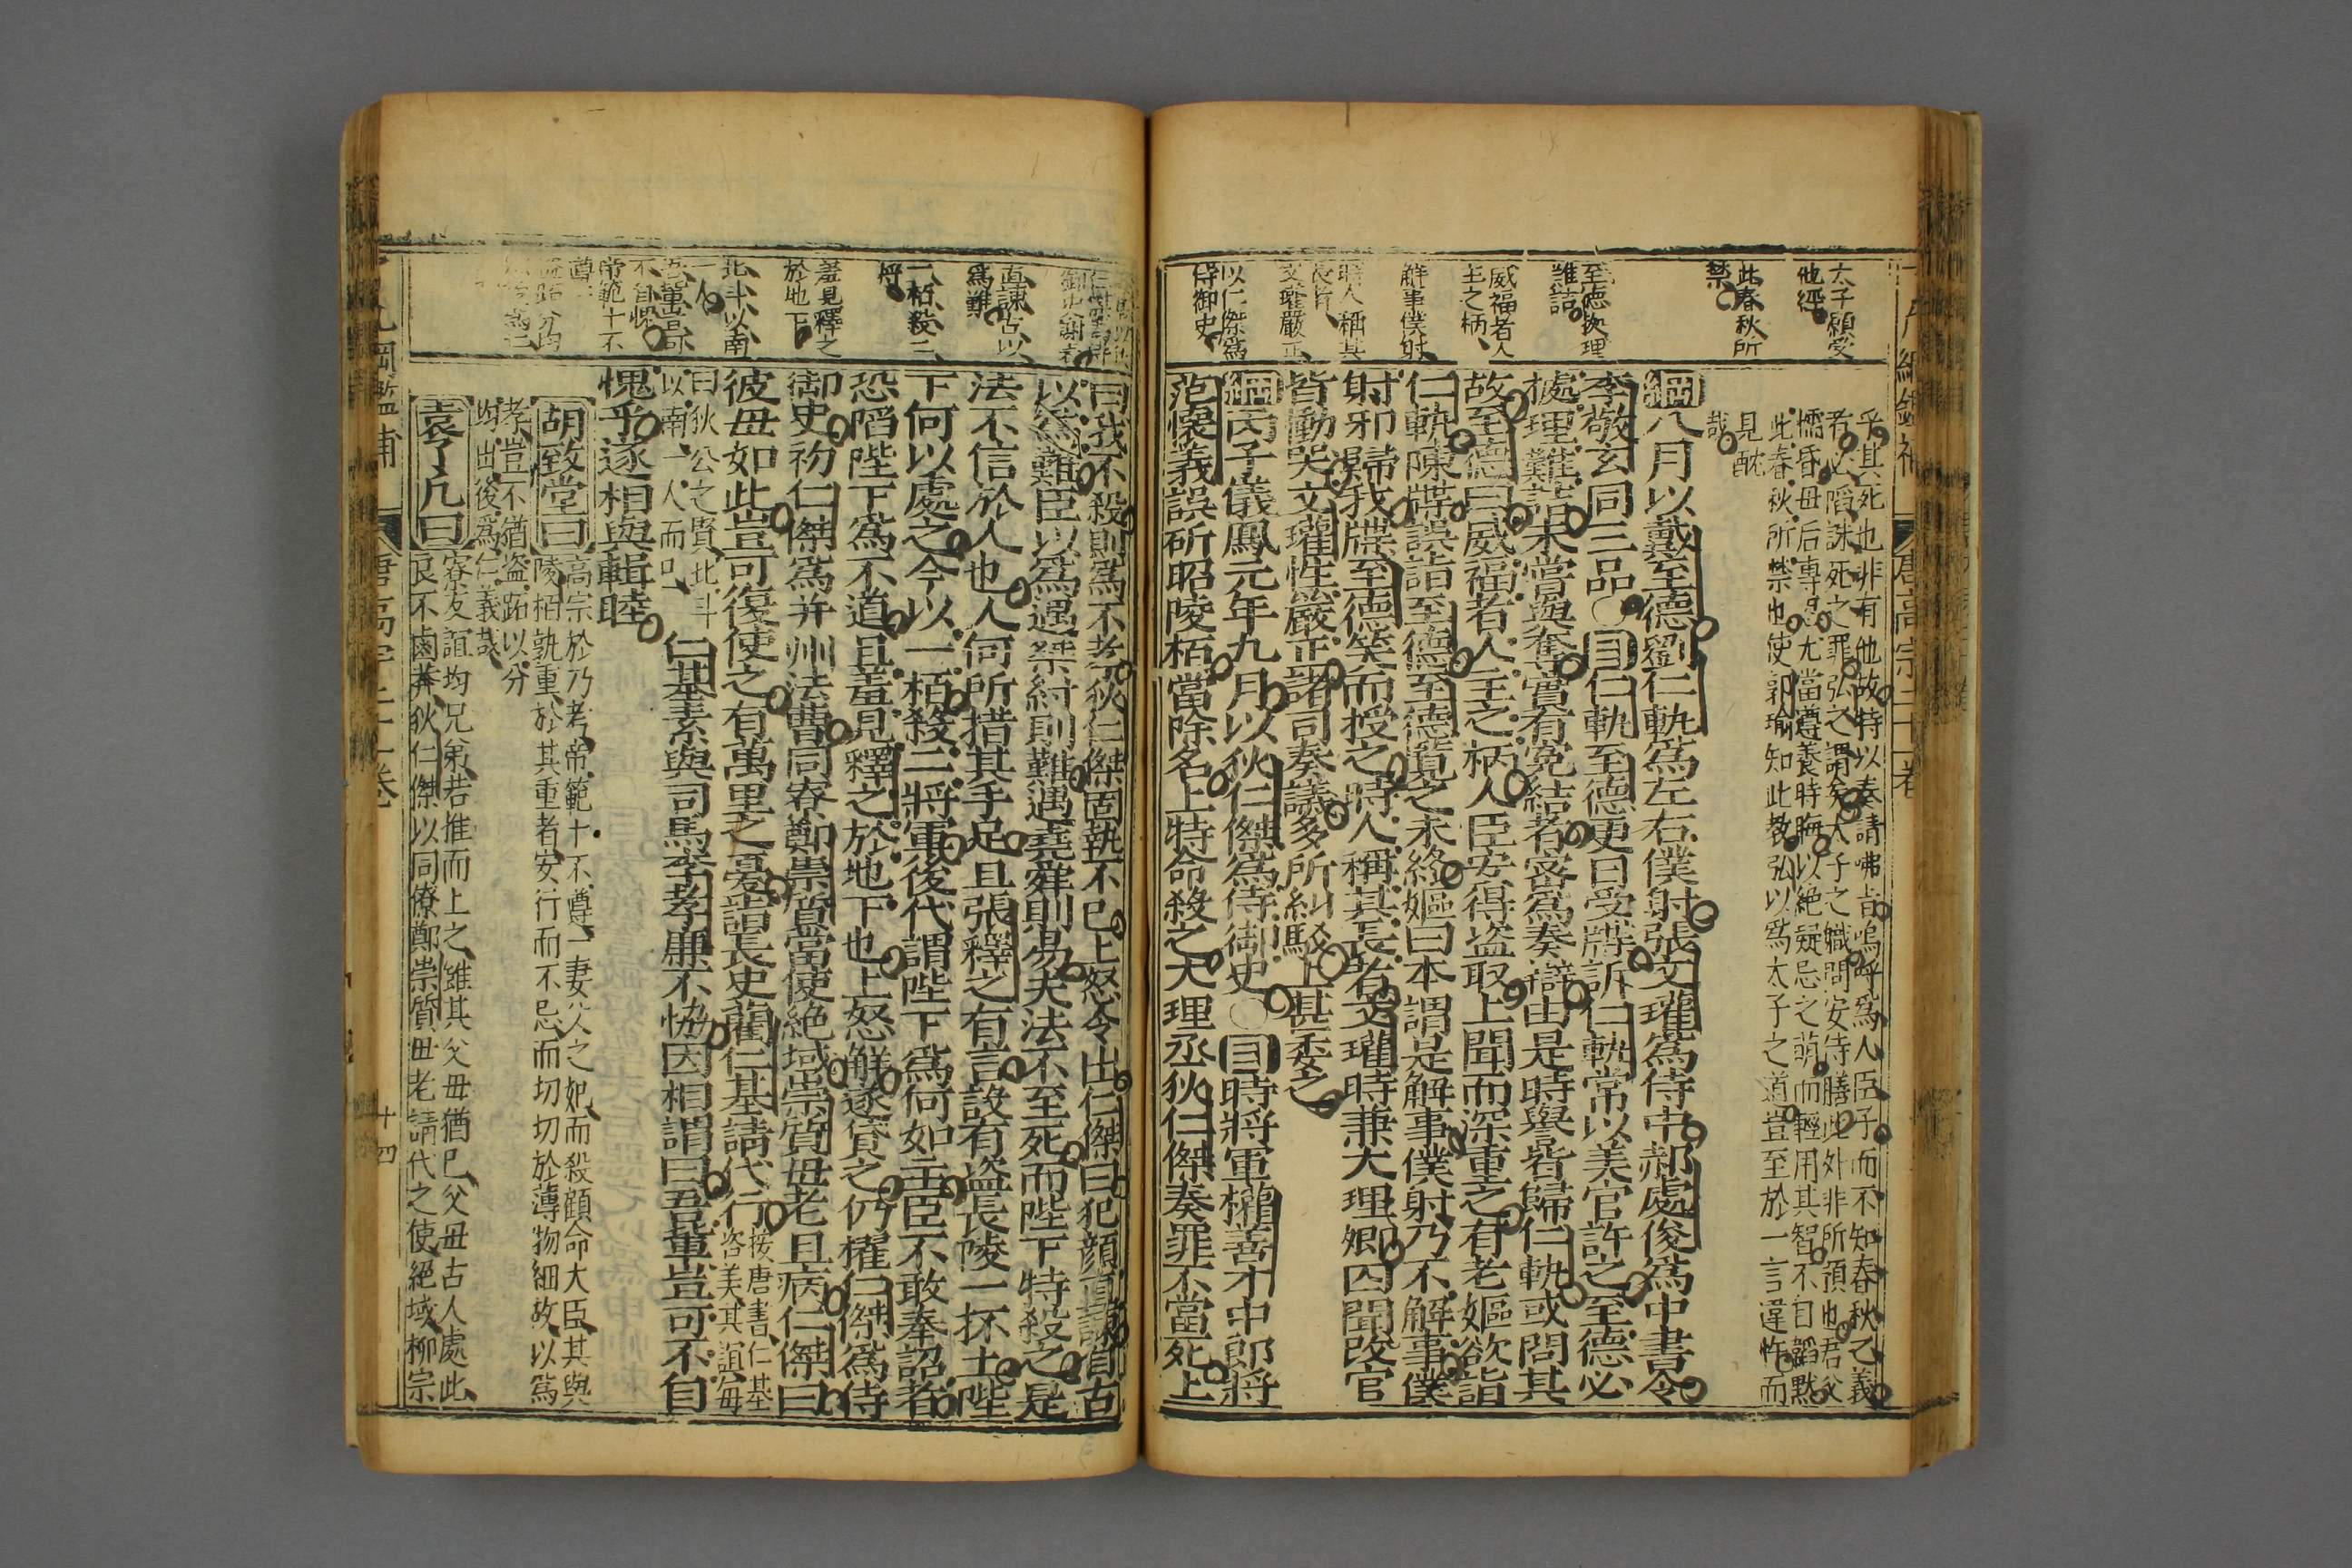 太子願受
他經
此春秋所
禁
至德㩀理
難詰
威福者人
主之柄
解事僕射
時人稱其
長者
文瓘嚴正
以仁傑爲
侍御史
乎其死也非有他故特以奏請咈旨嗚呼爲人臣子而不知春秋之義
者必䧟誅死之罪弘之謂矣太子之職問安侍膳此外非所預也君父
懦昏母后專忌尤當遵養時晦以絶疑忌之萌而輕用其智不自韜默
此春秋所禁也使郭瑜知此教弘以爲太子之道豈至於一言違忤而
見酖
哉
綱八月以戴至德劉仁軌爲左右僕射張文瓘爲侍中郝處俊爲中書令
李敬玄同三品○目仁軌至德更日受牒訴仁軌常以美官許之至德必
㨿理難詰未嘗與奪實有寃結者密爲奏辯由是時譽皆歸仁軌或問其
故至德曰威福者人主之柄人臣安得盜取上聞而深重之有老嫗欲詣
仁軌陳牒誤詣至德至德覽之未終嫗曰本謂是解事僕射乃不解事僕
射邪歸我牒至德笑而授之時人稱其長者文瓘時兼大理卿囚聞改官
皆慟哭文瓘性嚴正諸司奏議多所糾駁上甚委之
綱丙子儀鳳元年九月以狄仁傑爲侍御史○目時將軍權善才中郎將
范懷義誤斫昭陵栢當除名上特命殺之大理丞狄仁傑奏罪不當死上
直諫古以
爲難
一栢殺二
將
羞見釋之
於地下
北斗以南
一人
吾輩豈可
不自愧
帝範十不
遵一
曰我不殺則爲不孝狄仁傑固執不已上怒令出仁傑曰犯顏直諫自古
以爲難臣以爲遇桀紂則難遇堯舜則易夫法不至死而陛下特殺之是
法不信於人也人何所措其手足且張釋之有言設有盜長陵一抔土陛
下何以處之今以一栢殺二將軍後代謂陛下爲何如主臣不敢奉詔者
恐䧟陛下爲不道且羞見釋之於地下也上怒解遂貸之仍擢仁傑爲侍
御史初仁傑爲并州法曹同寮鄭崇質當使絶域崇質母老且病仁傑曰
彼母如此豈可復使之有萬里之憂詣長史藺仁基請代行
按唐書仁基
咨美其誼每
曰狄公之賢北斗
以南一人而已
仁基素與司馬李孝廉不恊因相謂曰吾輩豈可不自
愧乎遂相與輯睦
胡致堂曰
高宗於乃考帝範十不遵一妻父之妃而殺顧命大臣其與
陵栢孰重於其重者安行而不忌而切切於薄物細故以爲
孝豈不猶盜跖以分
均出後爲仁義哉
袁了凡曰
寮友誼均兄弟若推而上之雖其父母猶已父母古人處此
良不鹵莽狄仁傑以同僚鄭崇質母老請代之使絕域柳宗
十四